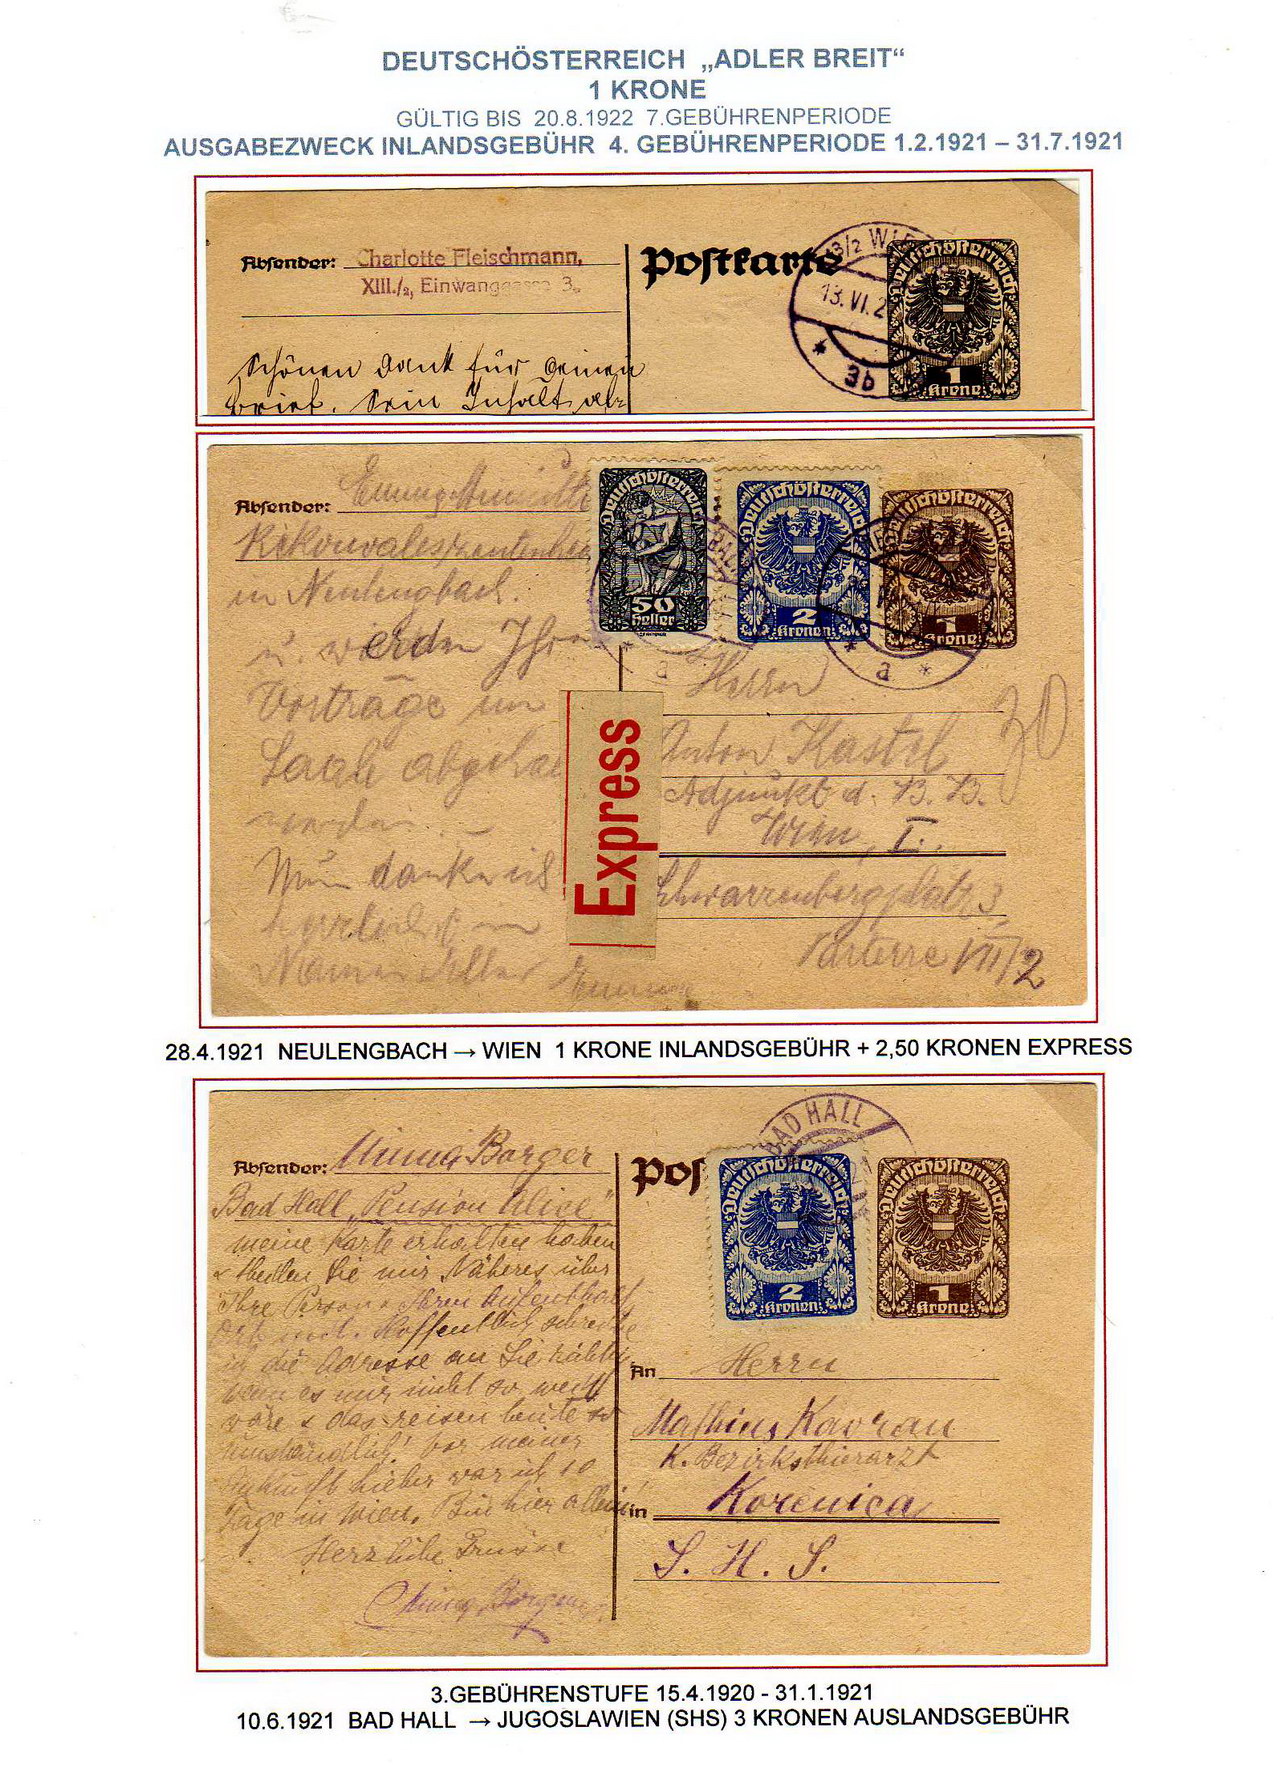 DEUTSCHÖSTERREICH „ADLER BREIT“
1 KRONE
GÜLTIG BIS 20.8.1922 7.GEBÜHRENPERIODE
AUSGABEZWECK INLANDSGEBÜHR 4. GEBÜHRENPERIODE 1.2.1921 – 31.7.1921
Absender: Charlotte Fleischmann,
XIII./2, Einwanggasse 3.
Postkarte
13/2 WIE
13. VI. 2
* 3b
Deutschösterreich
1
Krone
Schönen Dank für Deinen
Brief. Sein Inhalt
Absender:
in Neulengbach.
u. werden
Vorträge im
abgehal
werden. –
Nun danke ich
herzlichst im
Namen Aller
Deutschösterreich
50
Heller
Deutschösterreich
2
Kronen
Deutschösterreich
1
Krone
* a *
Express
Herrn
Anton Kastel
Adjunkt d. B. B.
Wien, I.
Schwarzenbergplatz 3
Parterre VII/2
30
28.4.1921 NEULENGBACH → WIEN 1 KRONE INLANDSGEBÜHR + 2,50 KRONEN EXPRESS
Absender: Minna Borger
Bad Hall „Pension Alice“
meine Karte erhalten haben
Sie mir Näheres über
Ihre Person, Ihren Aufenthalt
Ort mit. Hoffentlich schreibe
ich die Adresse an Sie richtig
wenn es mir nicht so weit
wäre & das reisen heute so
umständlich! Vor meiner
Ankunft hieher war ich 10
Tage in Wien. Bin hier allein
Herzliche Grüsse
Pos
BAD HALL
21
Deutschösterreich
2
Kronen
Deutschösterreich
1
Krone
An Herrn
Mathias Kavran
K. Bezirksthierarzt
in Korenica
S. H. S.
3.GEBÜHRENSTUFE 15.4.1920 - 31.1.1921
10.6.1921 BAD HALL → JUGOSLAWIEN (SHS) 3 KRONEN AUSLANDSGEBÜHR